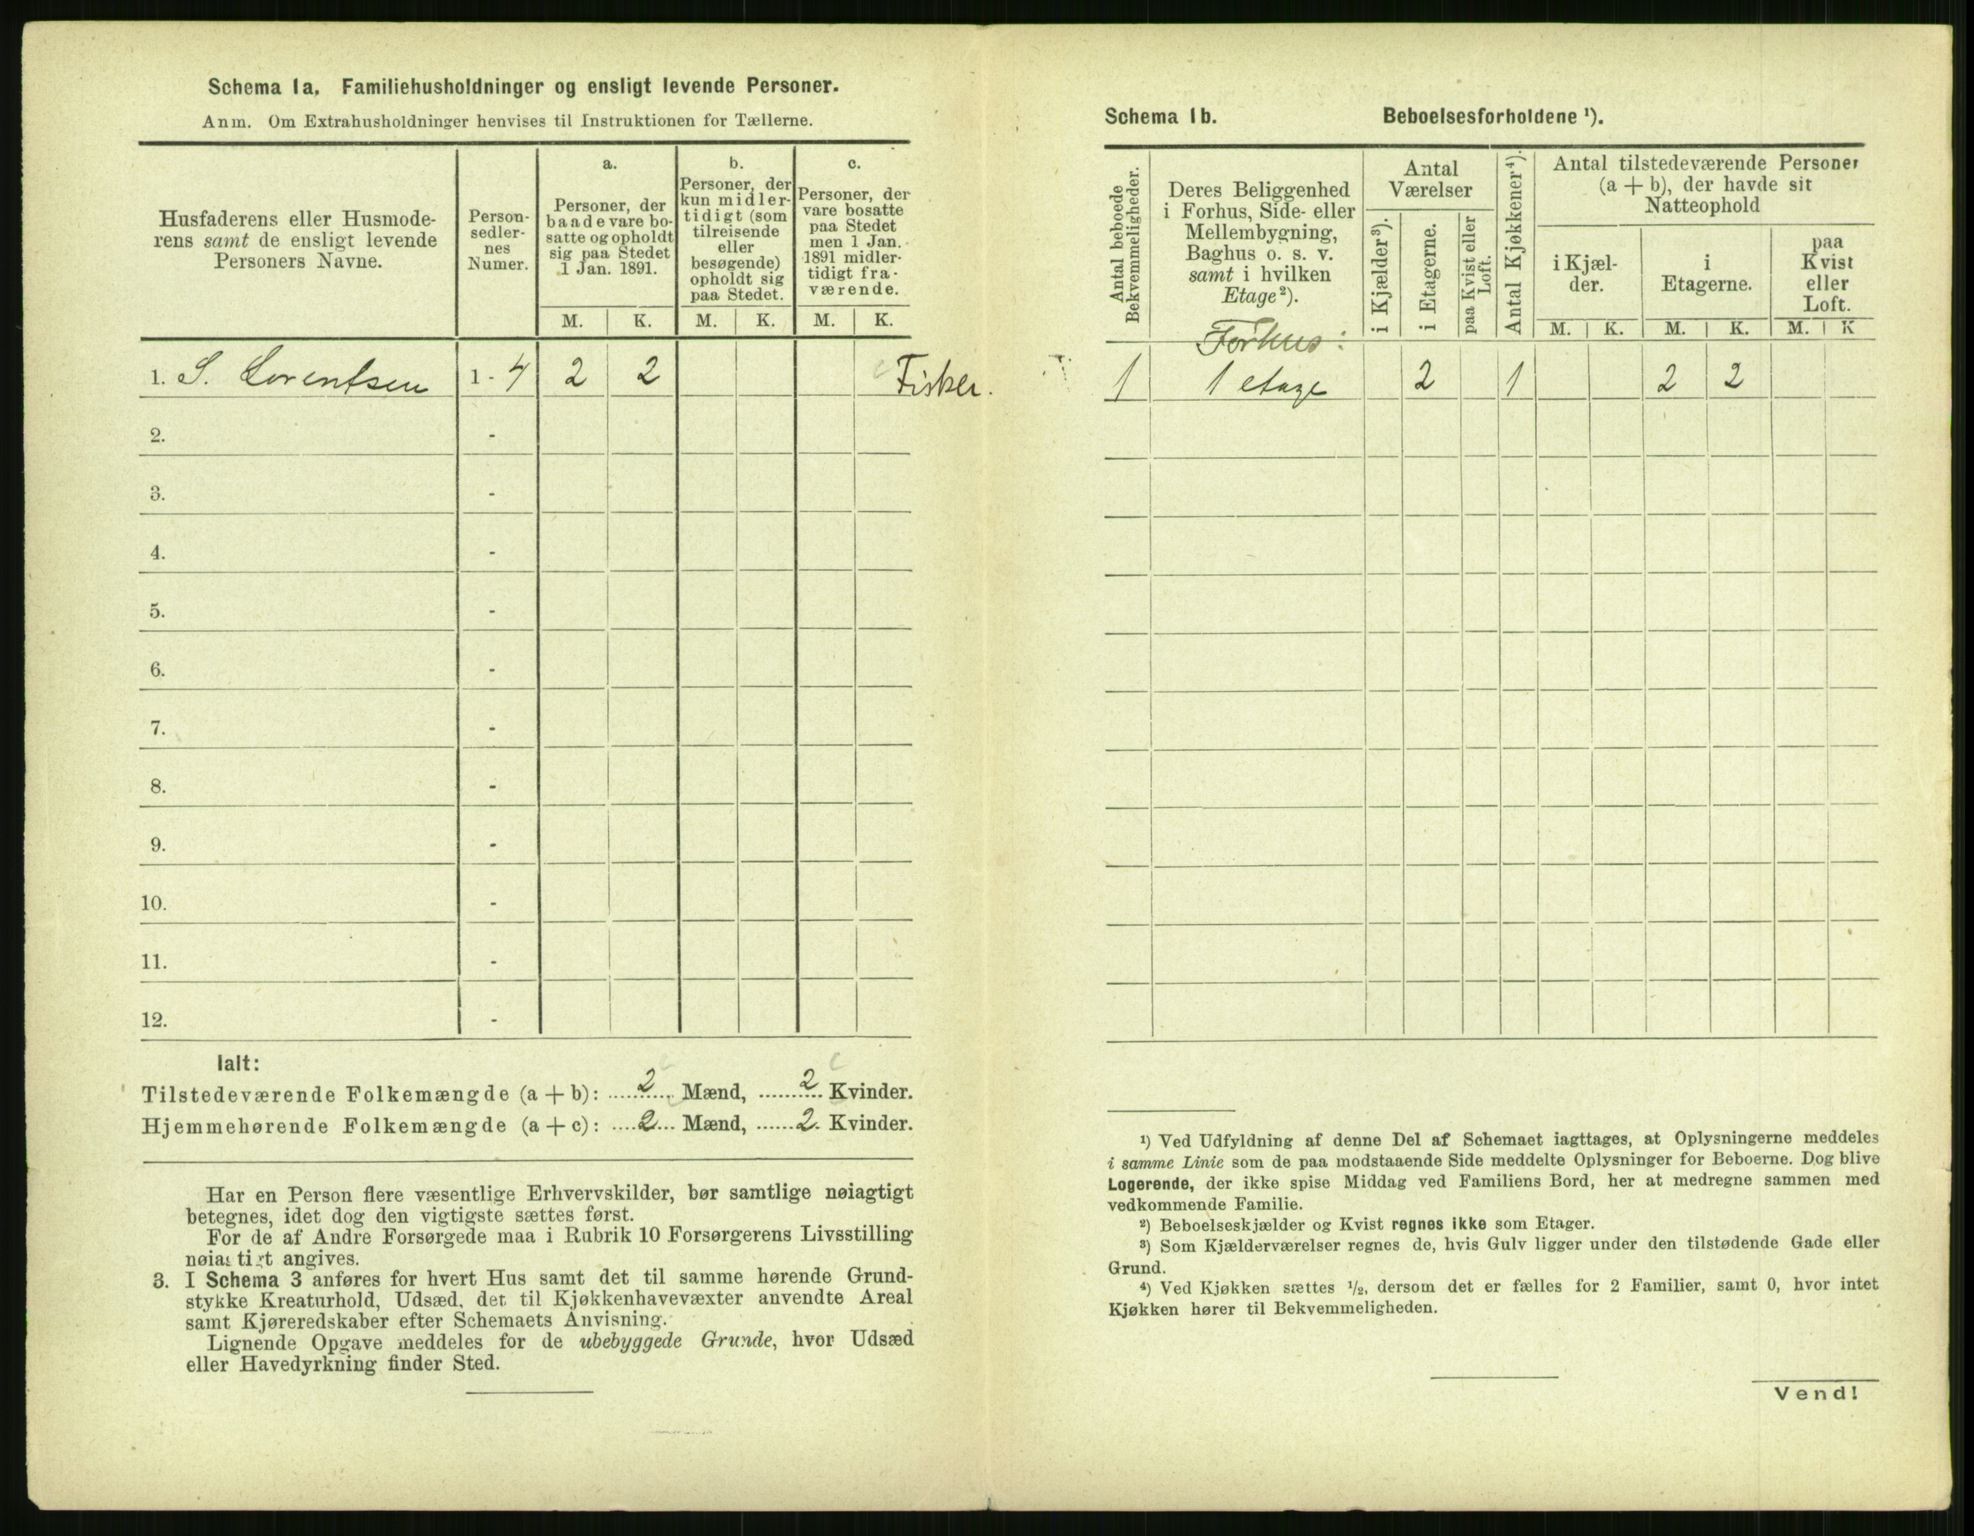 Schema 1a. Familiehusholdninger og ensligt levende Personer.
Anm. Om Extrahusholdninger henvises til Instruktionen for Tællerne.
Husfaderens eller Husmode-
rens samt de ensligt levende
Personers Navne.
Person-
sedler-
nes
Numer.
a.
Personer, der
baade vare bo-
satte og opholdt
sig paa Stedet
1 Jan. 1891.
b.
Personer, der
kun midler-
tidigt (som
tilreisende
eller
besøgende)
opholdt sig
paa Stedet.
c.
Personer, der
vare bosatte
paa Stedet
men 1 Jan.
1891 midler-
tidigt fra-
værende.
M. K. M. K. M. K.
1. S. Lorentsen 1 - 4 2 2 Fisker.
2. -
3. -
4. -
5. -
6. -
7. -
8. -
9. -
10. -
11. -
12. -
Ialt:
Tilstedeværende Folkemængde (a + b): 2 Mænd, 2 Kvinder.
Hjemmehørende Folkemængde (a + c): 2 Mænd, 2 Kvinder.
Har en Person flere væsentlige Erhvervskilder, bør samtlige nøiagtigt
betegnes, idet dog den vigtigste sættes først.
For de af Andre Forsørgede maa i Rubrik 10 Forsørgerens Livsstilling
nøiagtigt angives.
3. I Schema 3 anføres for hvert Hus samt det til samme hørende Grund-
stykke Kreaturhold, Udsæd, det til Kjøkkenhavevæxter anvendte Areal
samt Kjøreredskaber efter Schemaets Anvisning.
Lignende Opgave meddeles for de ubebyggede Grunde, hvor Udsæd
eller Havedyrkning finder Sted.
Schema 1b. Beboelsesforholdene ¹).
Antal beboede
Bekvemmeligheder.
Deres Beliggenhed
i Forhus, Side- eller
Mellembygning,
Baghus o. s. v.
samt i hvilken
Etage²).
Antal
Værelser
i Kjælder³).
i Etagerne.
paa Kvist eller
Loft.
Antal Kjøkkener⁴).
Antal tilstedeværende Personer
(a + b), der havde sit
Natteophold
i Kjæl-
der.
i
Etagerne.
paa
Kvist
eller
Loft.
M. K. M. K. M. K
Forhus:
1 1 etage 2 1 2 2
¹) Ved Udfyldning af denne Del af Schemaet iagttages, at Oplysningerne meddeles
i samme Linie som de paa modstaaende Side meddelte Oplysninger for Beboerne. Dog blive
Logerende, der ikke spise Middag ved Familiens Bord, her at medregne sammen med
vedkommende Familie.
²) Beboelseskjælder og Kvist regnes ikke som Etager.
³) Som Kjælderværelser regnes de, hvis Gulv ligger under den tilstødende Gade eller
Grund.
⁴) Ved Kjøkken sættes ½, dersom det er fælles for 2 Familier, samt 0, hvor intet
Kjøkken hører til Bekvemmeligheden.
Vend!